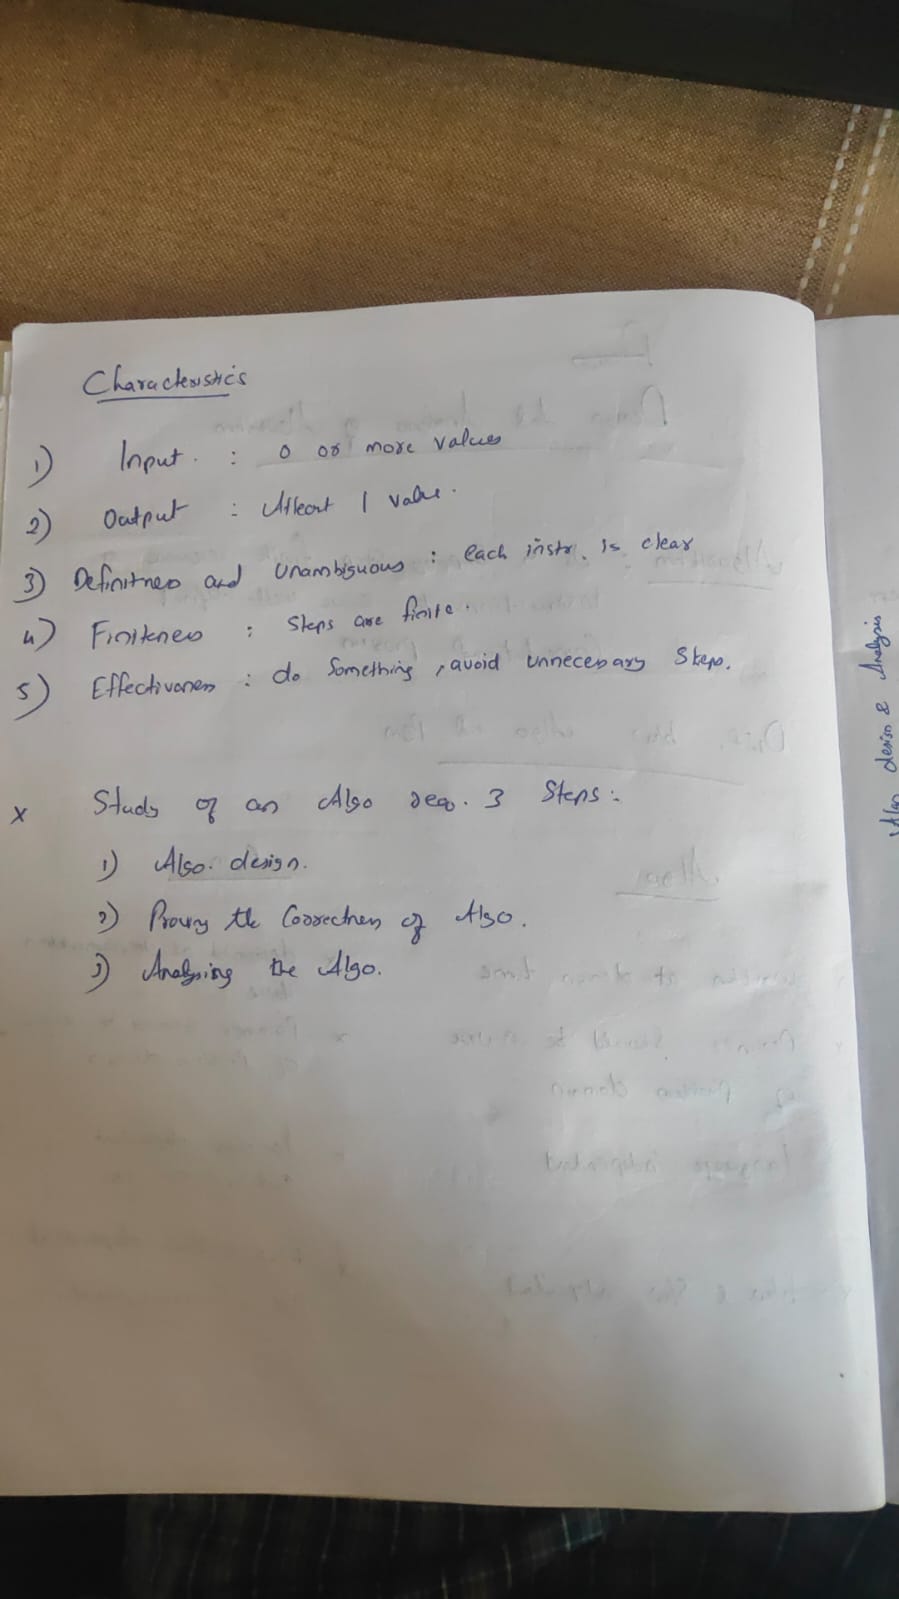 Characteristics
1) Input : 0 or more values
2) Output : Atleast 1 value.
3) Definitness and Unambiguous : each instr. is clear
4) Finiteness : Steps are finite.
5) Effectiveness : do Something, avoid unnecessary Steps.
x Study of an Algo req. 3 Steps :
1) Algo. design.
2) Proving the Correctness of Algo.
3) Analysing the Algo.
Algo design & Analysis